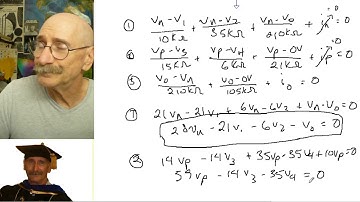 ① (Vn-V1)/10kΩ + (Vn-V2)/35kΩ + (Vn-Vo)/210kΩ + in = 0
② (Vp-V3)/15kΩ + (Vp-V4)/6kΩ + (Vp-0V)/21kΩ + ip = 0
③ (Vo-Vn)/210kΩ + (Vo-0V)/105kΩ + io = 0
① 21Vn-21V1 + 6Vn-6V2 + Vn-Vo=0
28Vn - 21V1 - 6V2 - Vo = 0
② 14Vp - 14V3 + 35Vp-35V4+10Vp=0
59Vp - 14V3 - 35V4 = 0